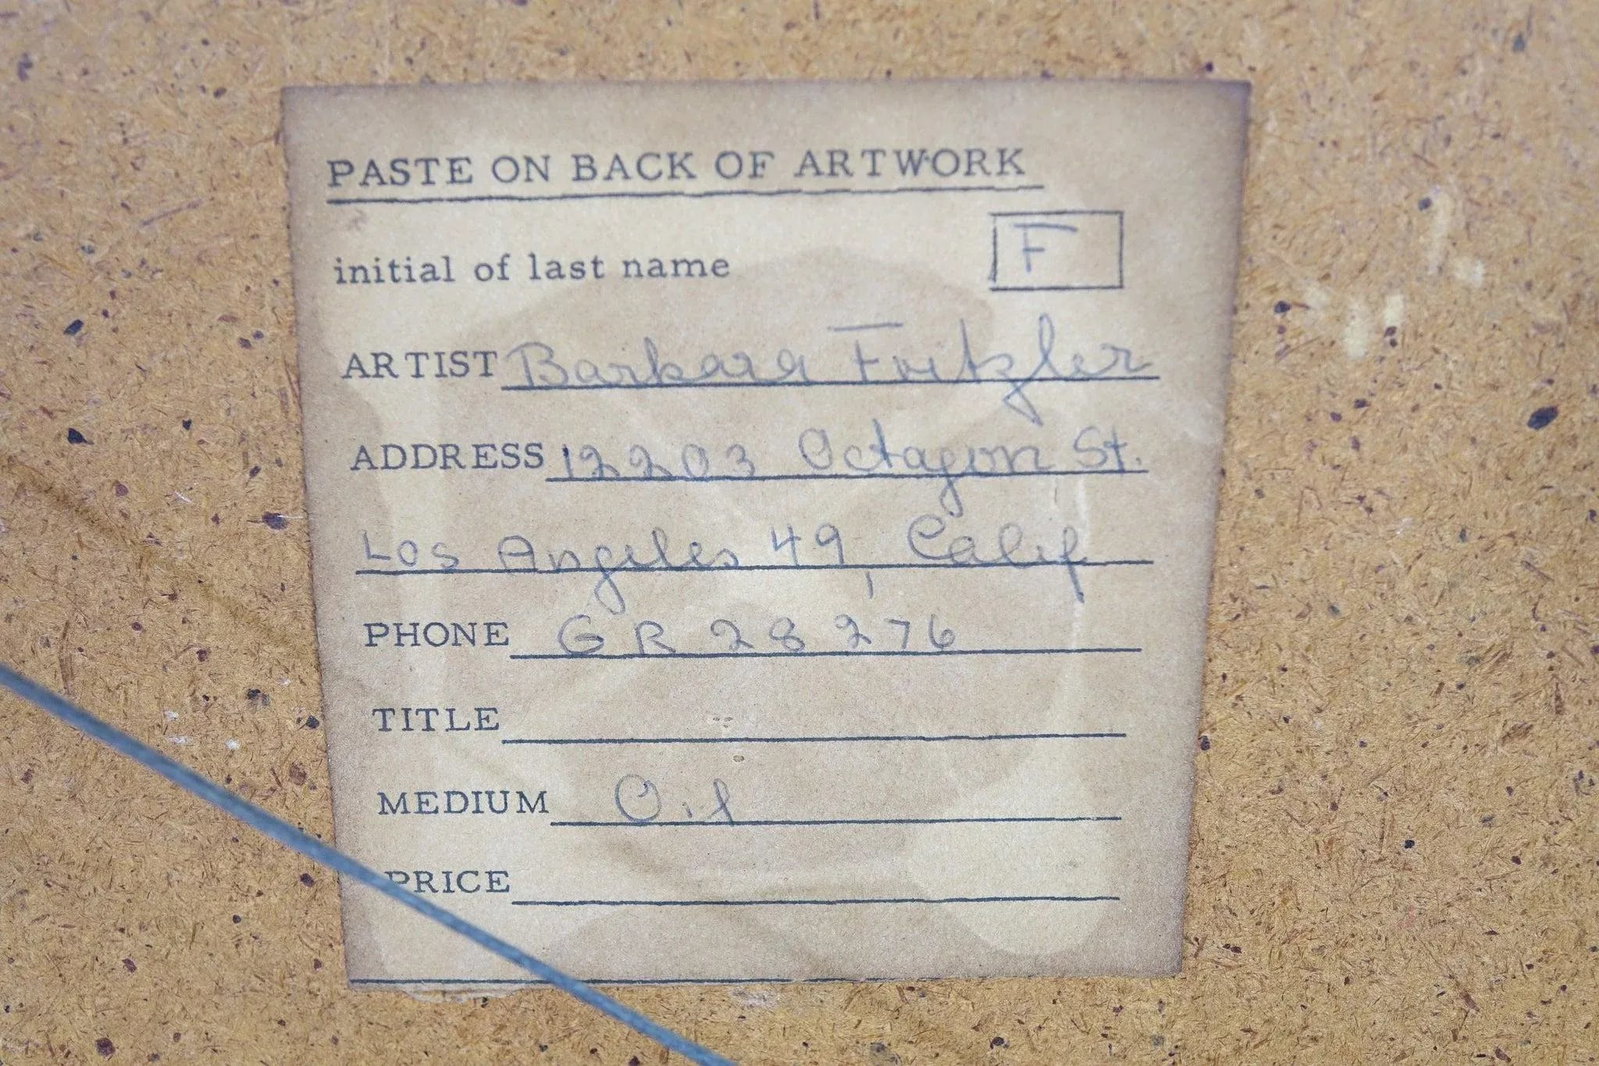 PASTE ON BACK OF ARTWORK
initial of last name F
ARTIST Barbara Fritzler
ADDRESS 12203 Octagon St.
Los Angeles 49, Calif
PHONE GR 28276
TITLE
MEDIUM Oil
PRICE